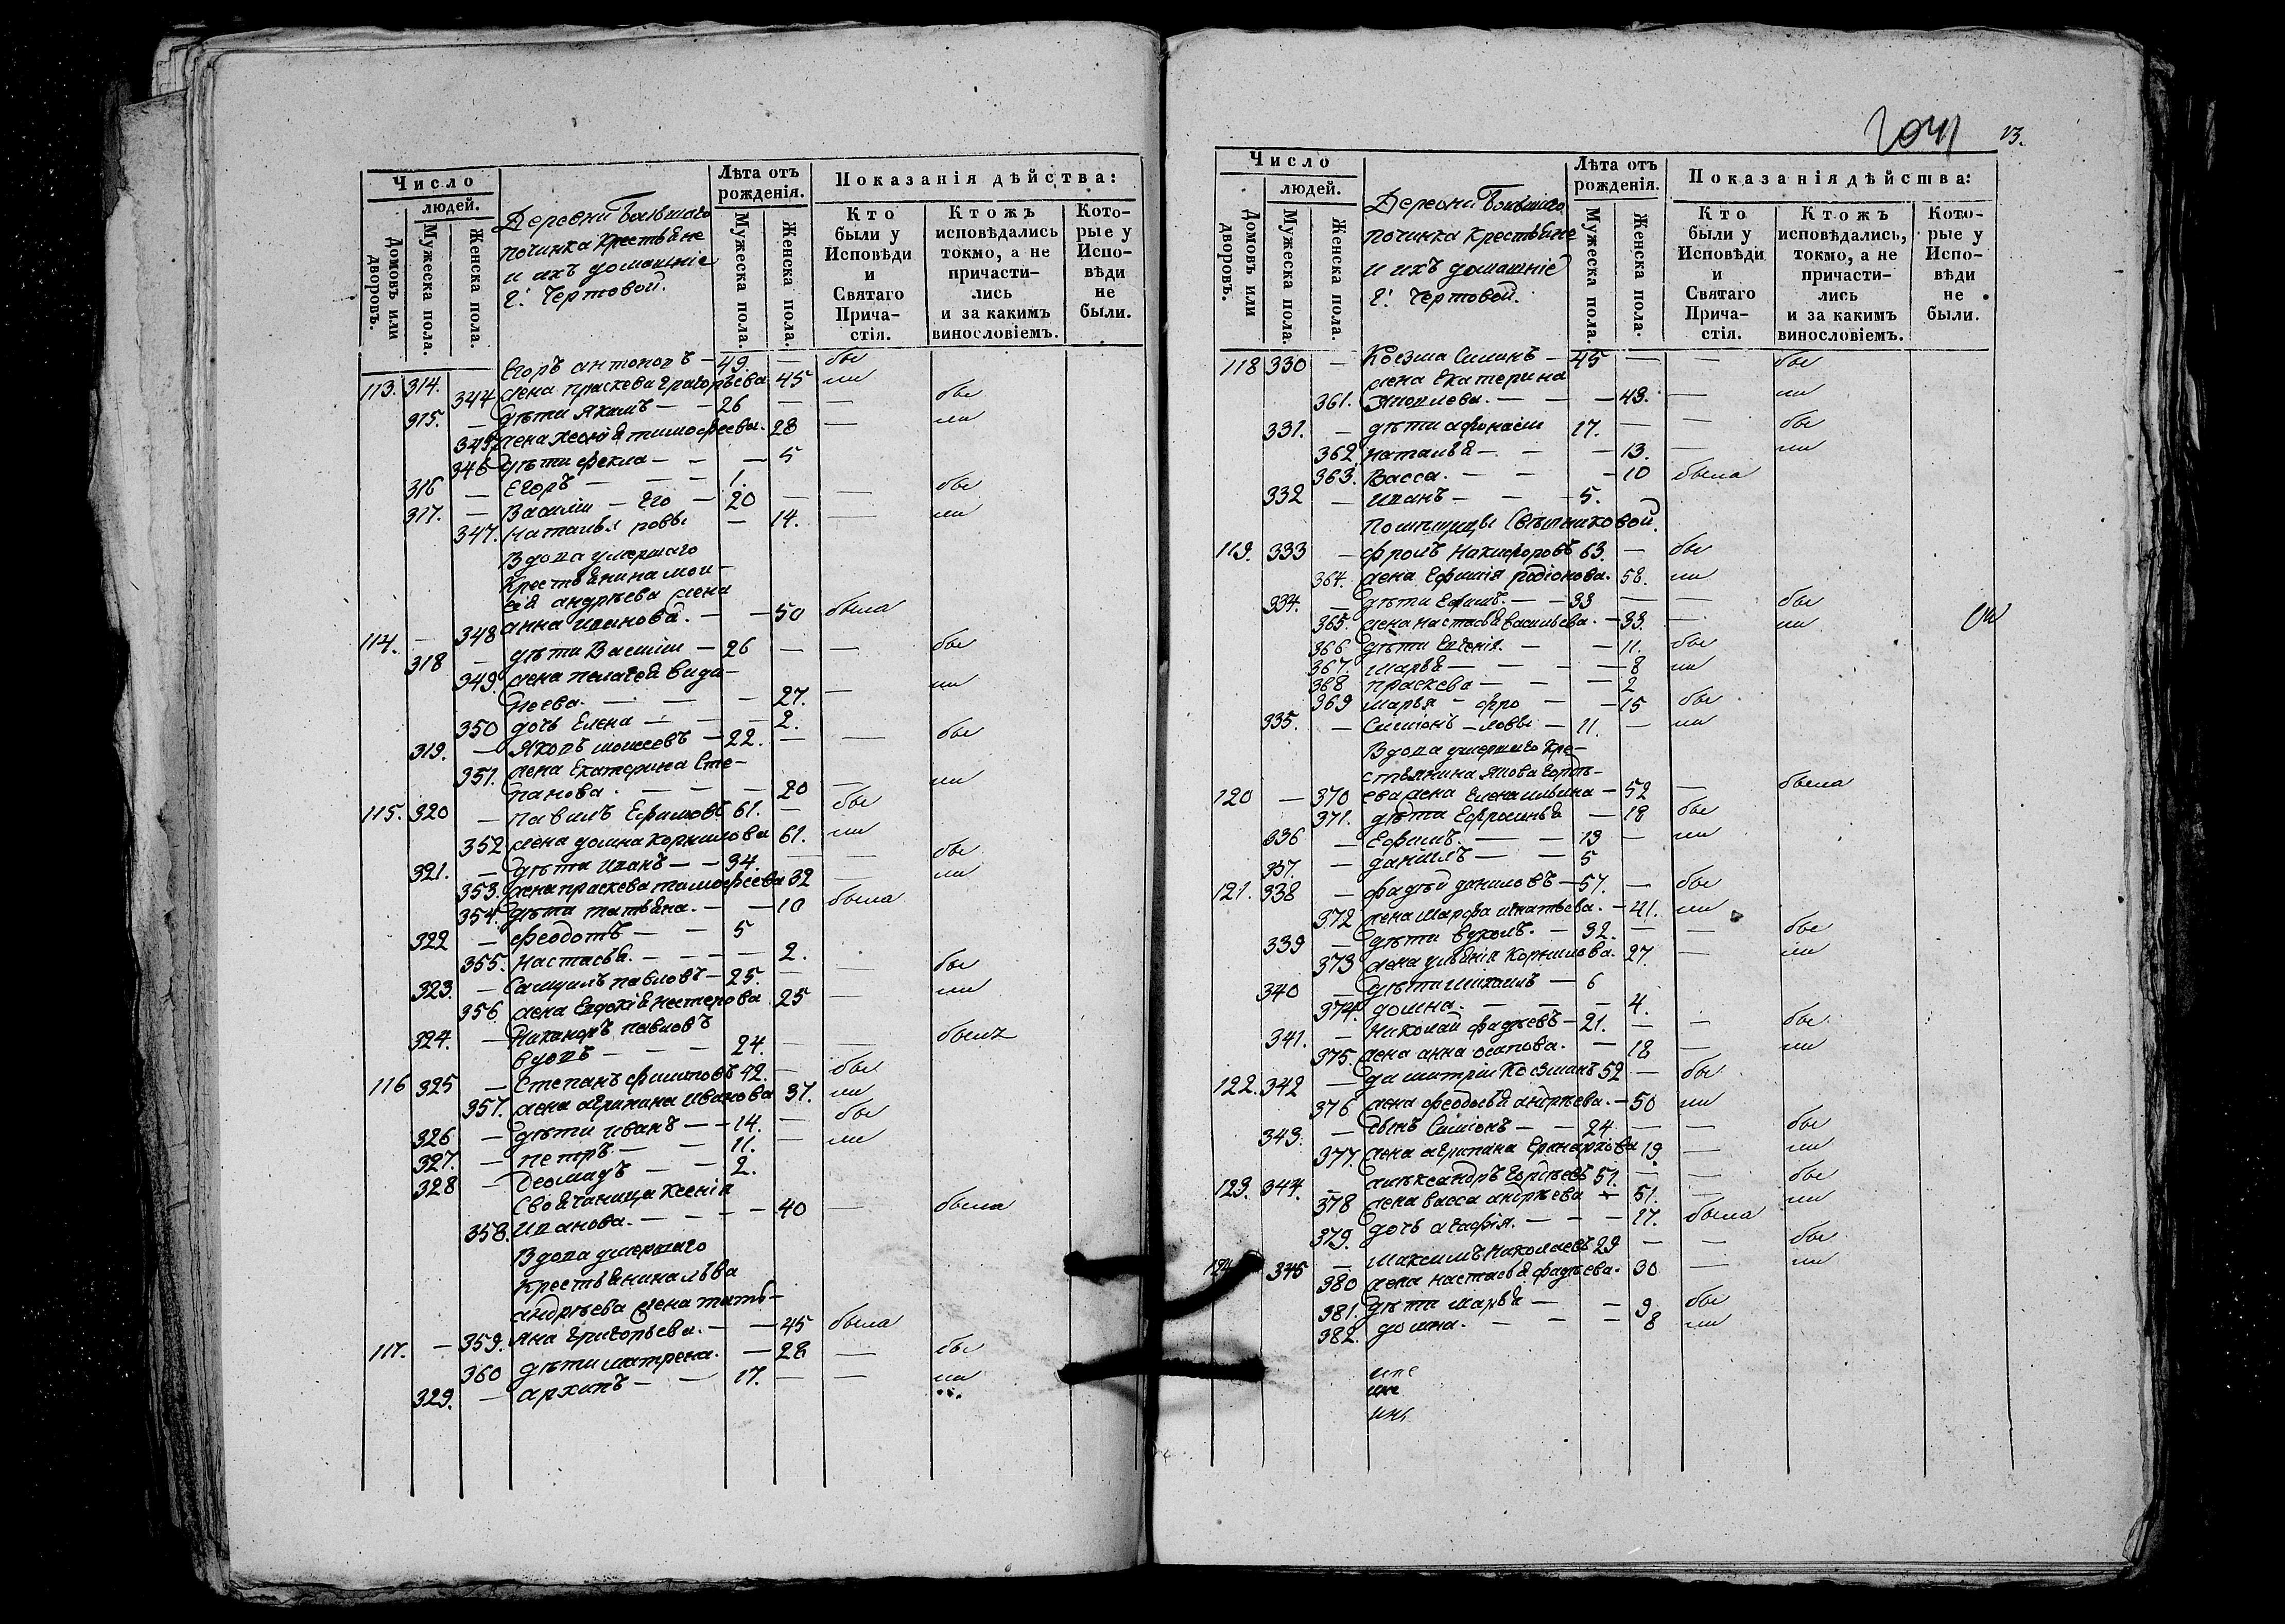 Число
людей.
Домовъ или дворовъ.
Мужеска пола.
Женска пола.
Деревни Бывшаго
починка Крестьяне
и ихъ домашніе
Г. Чертовой.
Лѣта отъ рожденія.
Мужеска пола.
Женска пола.
Показанія дѣйства:
Кто были у Исповѣди и Святаго Прича-стія.
Ктожъ исповѣдались токмо, а не причасти-лись и за какимъ винословіемъ.
Кото-рые у Испо-вѣди не были.
113. 314. Егоръ Антоновъ — 49. — бы
344 жена Праскева Григорьева 45 ли
315. — дѣти Якимъ — — 26 — — бы
345 жена Ксенія Тимофеева. 28 — ли
346 дѣти Фекла — — — 5
316 — Егоръ — — — 1.
317. — Василіи — Его — 20 — — бы
347. Наталья ровы — 14. — ли
Вдова умершаго
Крестьянина Мои-
сея Андреева жена
114. — 348 Анна Иванова. — — 50 была
318 — дѣти Василіи — 26 — — бы
349 жена Пелагея
— — — 27. — ли
350 дочь Елена — — — 2.
319. — Яковъ Моисеевъ — 22. — — бы
351. жена Екатерина Сте-
панова. — — — 20 — ли
115. 320 — Павилъ Ефимовъ 61. — бы
352 жена Домна Корнилова 61. ли
321. — дѣти Иванъ — — 34. — — бы
353. жена Праскева Тимофеева 32 — ли
354. дѣти Татьяна. — — 10 была
322 — Феодотъ — — 5
355. Настасья. — — — 2.
323. — Самуилъ Павловъ — 25. — — бы
356 жена Евдокія Нестерова 25 — ли
324. — Никаноръ Павловъ
вдовъ — — — 24. — — былъ
116 325 — Степанъ Филиповъ 42. — бы
357. жена Агрипина Иванова 37. ли
326 — дѣти Иванъ — — 14. — бы
327. — Петръ. — — 11. — ли
328 — Деомидъ — — 2.
Своячиница Ксенія
358. Иванова. — — — — 40 — была
Вдова умершаго
Крестьянина Льва
Андреева жена Тать-
117. — 359. яна Григорьева. — — 45 была
360 дѣти Матрена. — 28 — бы
329. — Архипъ — — 17. — — ли
13.
Число
людей.
Домовъ или дворовъ.
Мужеска пола.
Женска пола.
Деревни Бывшаго
починка Крестьяне
и ихъ домашніе
Г. Чертовой.
Лѣта отъ рожденія.
Мужеска пола.
Женска пола.
Показанія дѣйства:
Кто были у Исповѣди и Святаго Прича-стія.
Ктожъ исповѣдались, токмо, а не причасти-лись и за какимъ винословіемъ.
Кото-рые у Испо-вѣди не были.
118 330 — Козма Силинъ — 45 — — бы
жена Екатерина
361. — — — 43. — ли
331. — дѣти Афонасіи 17. — — бы
362 Наталья — — — 13. — ли
363. Васса. — — — 10 была
332 — Иванъ — — — 5.
Помѣщицы
119. 333 — Фролъ Никифоровъ 63. — бы
364. жена Ефимія Родіонова. 58. ли
334. — дѣти Ефимъ. — — 33 — — бы
365. жена Настасья Васильева. — 33. — ли
366 дѣти Евгенія. — — 11. бы
367. Марья — — — — 8 ли
368 Праскева — — — 2
369 Марья — Фро — — 15 бы
335. — Симіонъ — ловы — 11. — ли
Вдова умершаго Кре-
стьянина Якова Гордѣ-
120 — 370 ева жена Елена Ильина — 52 — была
371. дѣти Ефросинья — 18 бы
336 — Ефимъ. — — 13 — ли
337. — Даніилъ — — 5
121. 338 — Фадѣй Даниловъ — 57. — бы
372 жена Марфа Игнатьева. — 41. ли
339 — дѣти Вуколъ. — 32. — — бы
373 жена Ульянія Корнилова. 27. — ли
340 — дѣти Михаилъ — 6
374. Домна. — — — 4.
341. — Николай Фадѣевъ — 21. — — бы
375. жена Анна Осипова. — 18 — ли
122. 342 — Димитріи Козминъ 52 — бы
376 жена Феодосья Андреева. — 50 ли
343. — сынъ Симіонъ — — 24 — — бы
377. жена Агрипина 19. — ли
123. 344. — Александръ Гордѣевъ 51. — — бы
378 жена Васса Андреева — 51. — ли
379. дочь Агафія. — — — 17. была
124 345 — Максимъ Николаевъ 29 — — бы
380 жена Настасья Фадѣева. 30 — ли
381. дѣти Марья — — 9 бы
382. Домна. — — — 8 ли